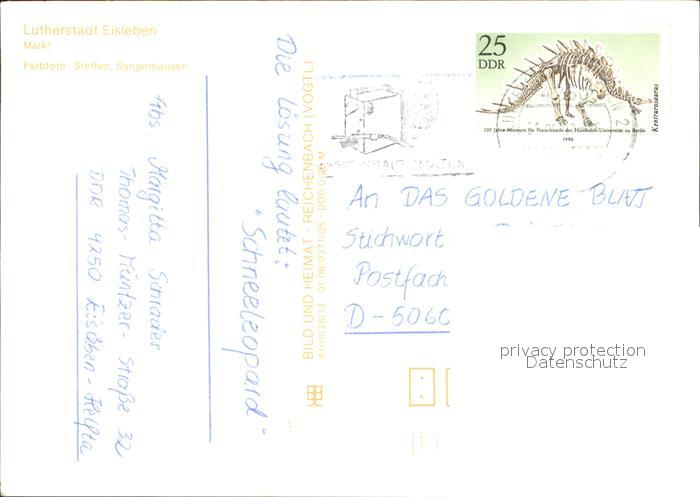 Lutherstadt Eisleben
Markt
Farbfoto: Steffen, Sangerhausen
Abs. Margitta Schrader
Thomas-Müntzer-Straße 32
DDR 4250 Eisleben-Helfta
Die Lösung lautet:
"Schneeleopard"
BILD UND HEIMAT · REICHENBACH (VOGTL)
A1/III/26/13 01 08 0371/05 · DDR M
25
DDR
Kentrurosaurus
100 Jahre Museum für Naturkunde der Humboldt-Universität zu Berlin
1990
An DAS GOLDENE BLATT
Stichwort
Postfach
D-5060
privacy protection
Datenschutz